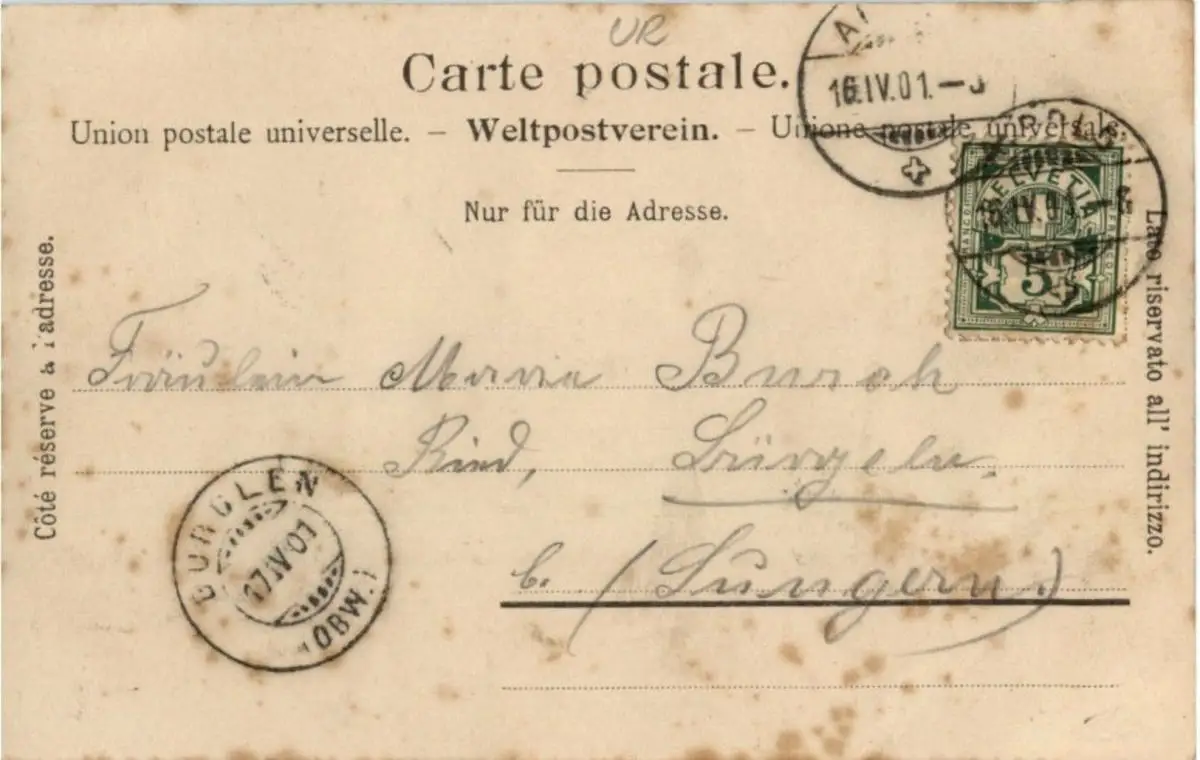 UR
Carte postale.
16.IV.01.-
Union postale universelle. – Weltpostverein. – Unione postale universale.
Nur für die Adresse.
HELVETIA
FRANCO
5
Côté réservé à l'adresse.
Lato riservato all' indirizzo.
Fräulein Maria Burch
Ried, Bürgeln,
b. (Lungern.)
BÜRGLEN
17.IV.01
(OBW.)